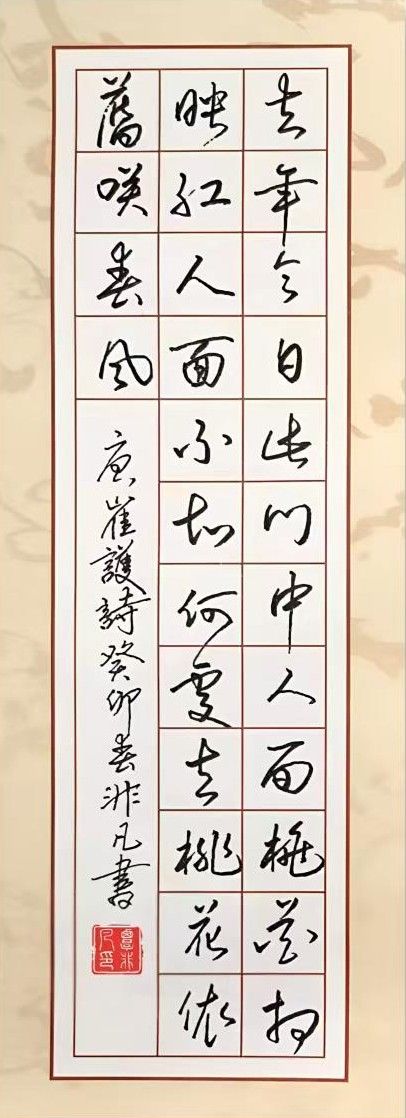 去年今日此门中人面桃花相
映红人面不知何處去桃花依
舊咲春风
唐崔護詩癸卯春非凡書